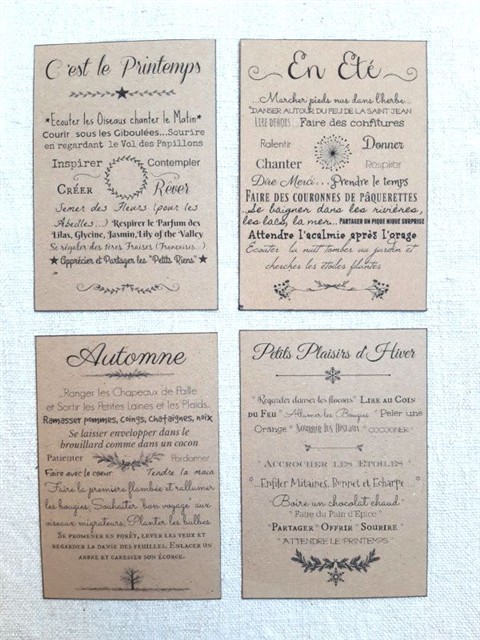 C'est le Printemps
*Ecouter les Oiseaux chanter le Matin*
Courir sous les Giboulées...Sourire
en regardant le Vol des Papillons
Inspirer Contempler
CRÉER Rêver
Semer des Fleurs (pour les
Abeilles...) Respirer le Parfum des
Lilas, Glycine, Jasmin, Lily of the Valley
Se régaler des 1ères Fraises (Françaises..)
★Apprécier et Partager les "Petits Riens"★
En Eté
...Marcher pieds nus dans l'herbe...
*DANSER AUTOUR DU FEU DE LA SAINT JEAN
LIRE DEHORS... Faire des confitures
Ralentir Donner
Chanter Respirer
Dire Merci...Prendre le temps
FAIRE DES COURONNES DE PÂQUERETTES
...Se baigner dans les rivières,
les lacs, la mer.. PARTAGER UN PIQUE NIQUE SURPRISE
Attendre l'acalmie après l'orage
Ecouter la nuit tomber au jardin et
chercher les étoiles filantes
Automne
...Ranger les Chapeaux de Paille
et Sortir les Petites Laines et les Plaids..
Ramasser pommes, coings, chataignes, noix
Se laisser envelopper dans le
brouillard comme dans un cocon
Patienter Pardonner
Faire avec le coeur Tendre la main
Faire la première flambée et rallumer
les bougies. Souhaiter bon voyage aux
oiseaux migrateurs. Planter les bulbes
SE PROMENER EN FORÊT, LEVER LES YEUX ET
REGARDER LA DANSE DES FEUILLES. ENLACER UN
ARBRE ET CARESSER SON ÉCORCE.
Petits Plaisirs d'Hiver
*Regarder danser les flocons* LIRE AU COIN
DU FEU * Allumer les Bougies * Peler une
Orange * SOURIRE LES OISEAUX * COCOONER *
ACCROCHER LES ETOILES
*Enfiler Mitaines, Bonnet et Echarpe *
*Boire un chocolat chaud*
* Faire du Pain d'Epice *
*PARTAGER * OFFRIR * SOURIRE *
* ATTENDRE LE PRINTEMPS *